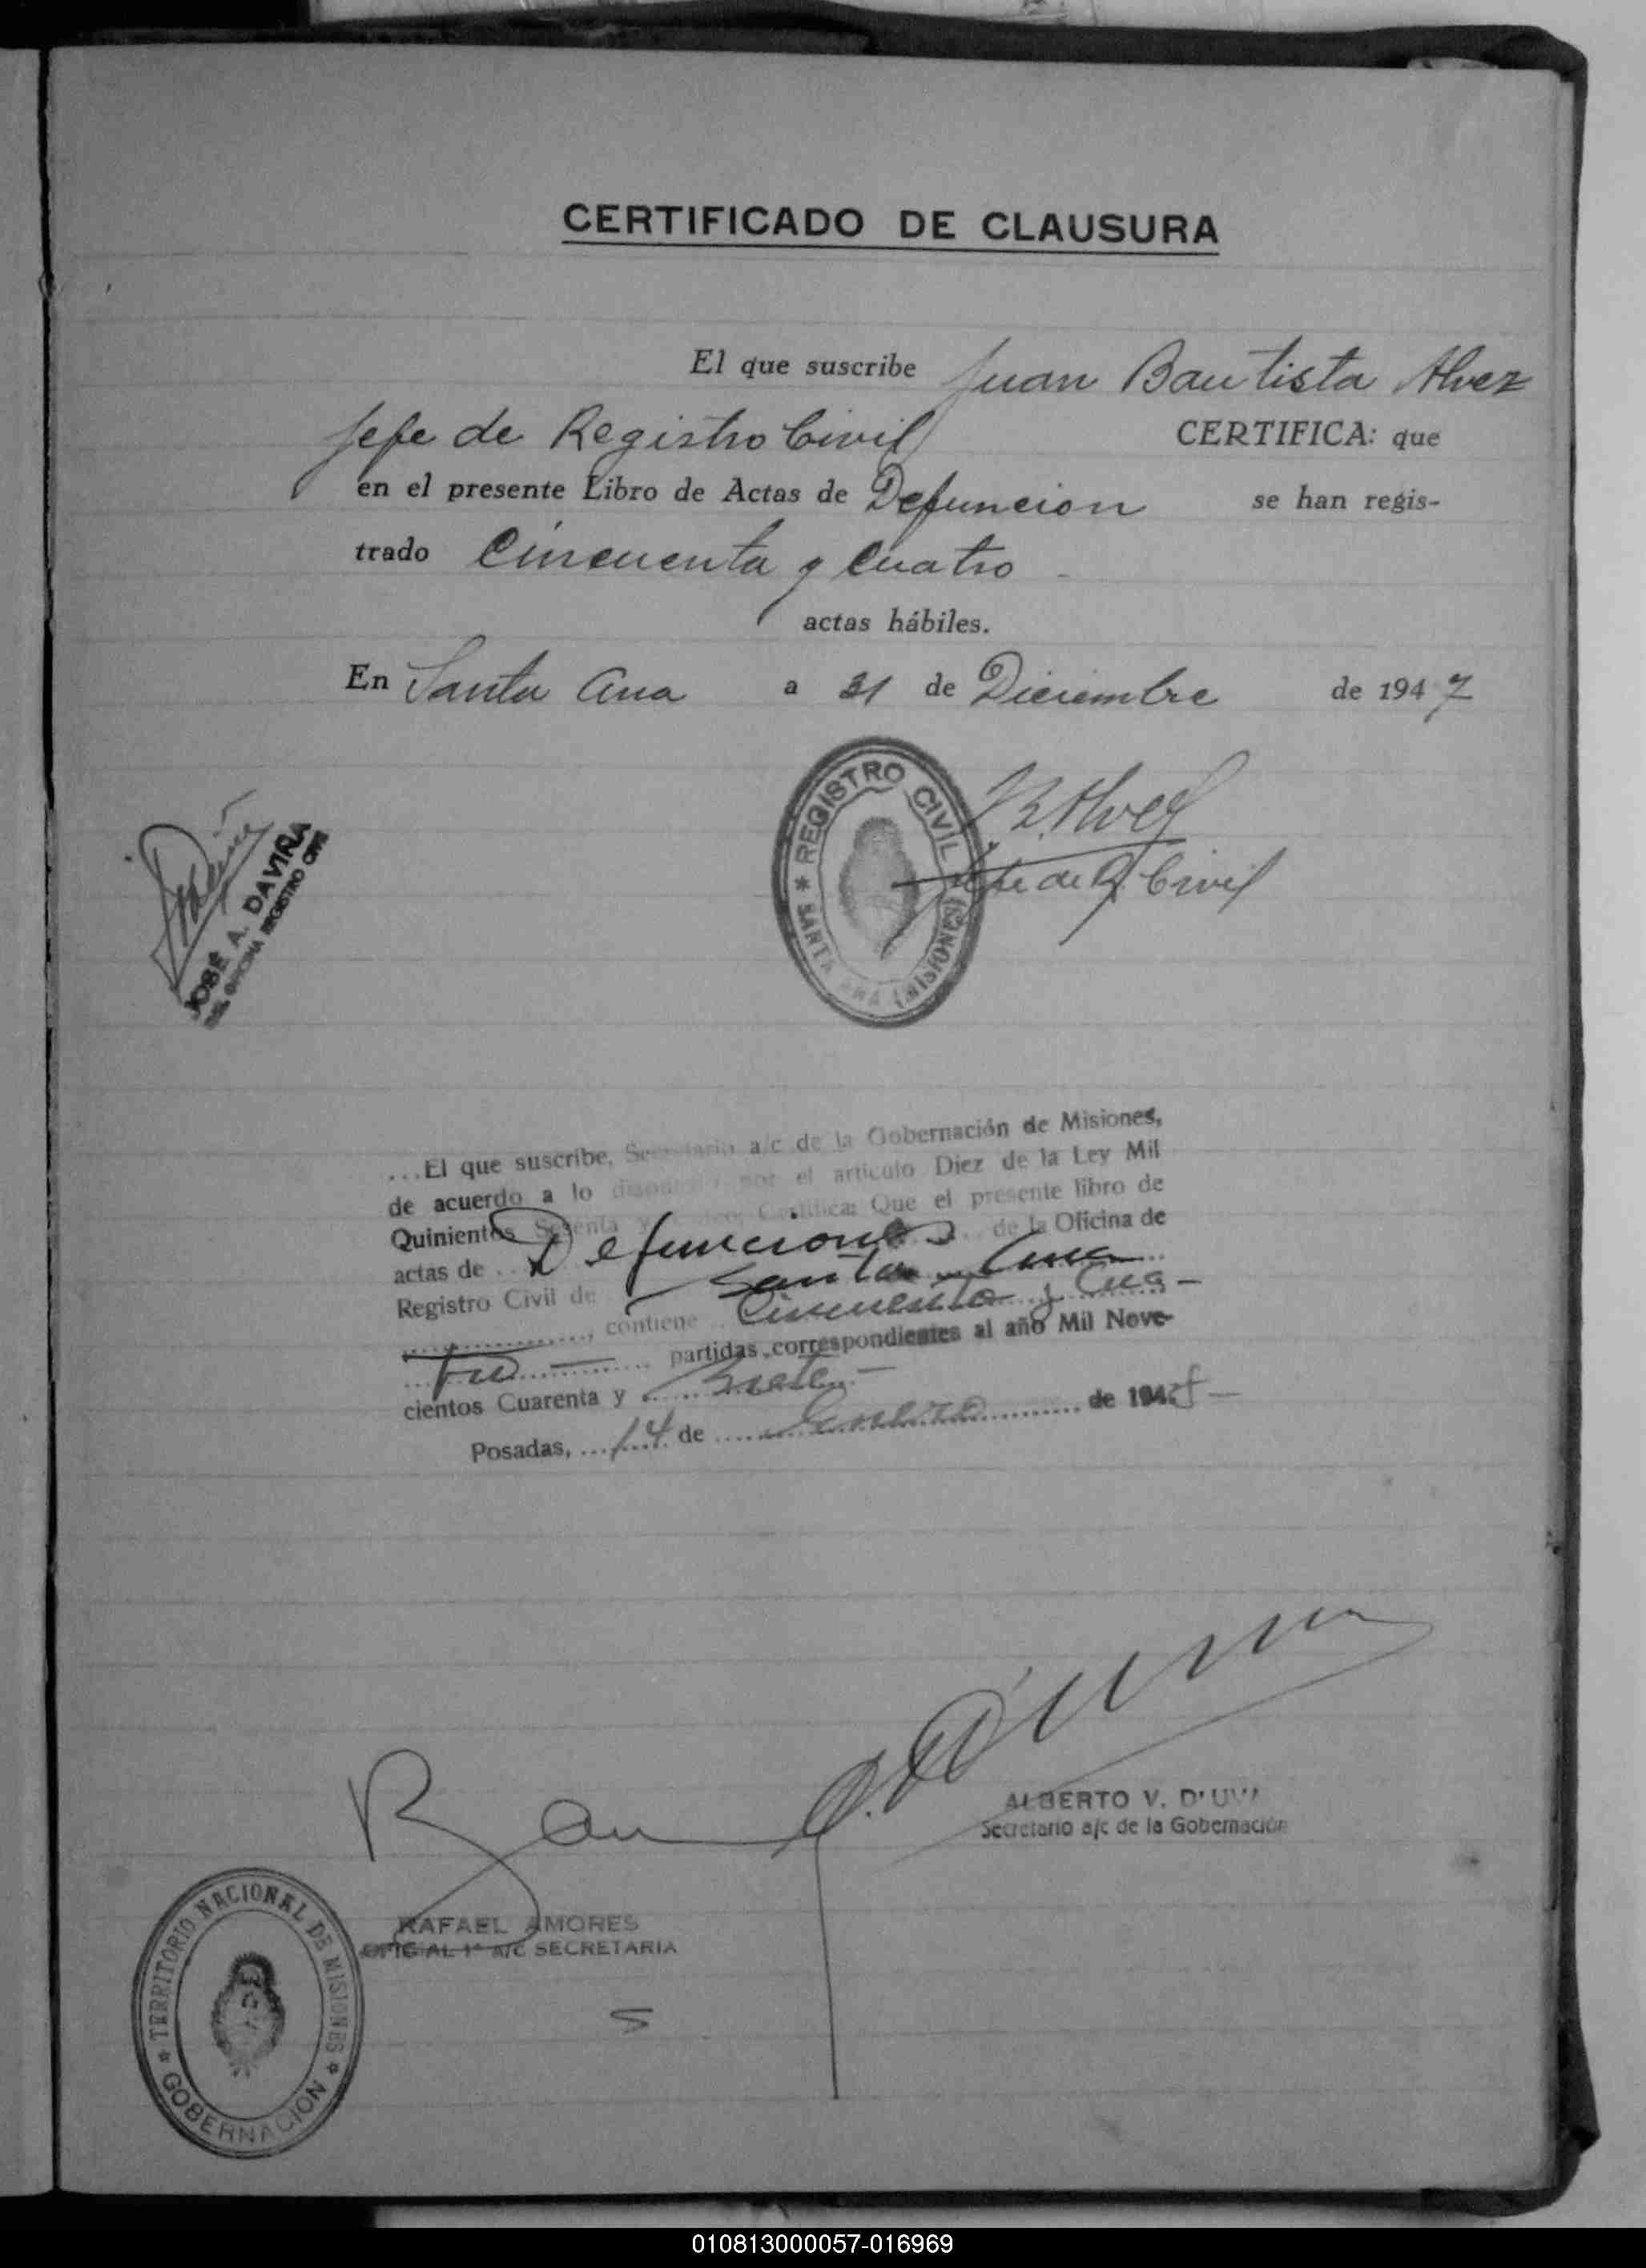 CERTIFICADO DE CLAUSURA
El que suscribe Juan Bautista Alvez
Jefe de Registro Civil CERTIFICA: que
en el presente Libro de Actas de Defuncion se han regis-
trado Cincuenta y Cuatro
actas hábiles.
En Santa Ana a 31 de Diciembre de 1947
REGISTRO CIVIL
SANTA ANA (MISIONES)
J.B. Alvez
Jefe de R. Civil
JOSÉ A. DAVIÑA
OFICINA REGISTRO CIVIL
...El que suscribe, Secretario a/c de la Gobernación de Misiones,
de acuerdo a lo dispuesto por el artículo Diez de la Ley Mil
Quinientos Sesenta y Cinco, Certifica: Que el presente libro de
actas de Defunciones de la Oficina de
Registro Civil de Santa Ana
contiene Cincuenta y Cua-
tro partidas correspondientes al año Mil Nove-
cientos Cuarenta y Siete
Posadas, 14 de Enero de 1948
ALBERTO V. D'UVA
Secretario a/c de la Gobernación
RAFAEL AMORES
OFICIAL 1º A/C SECRETARIA
TERRITORIO NACIONAL DE MISIONES
GOBERNACION
010813000057-016969